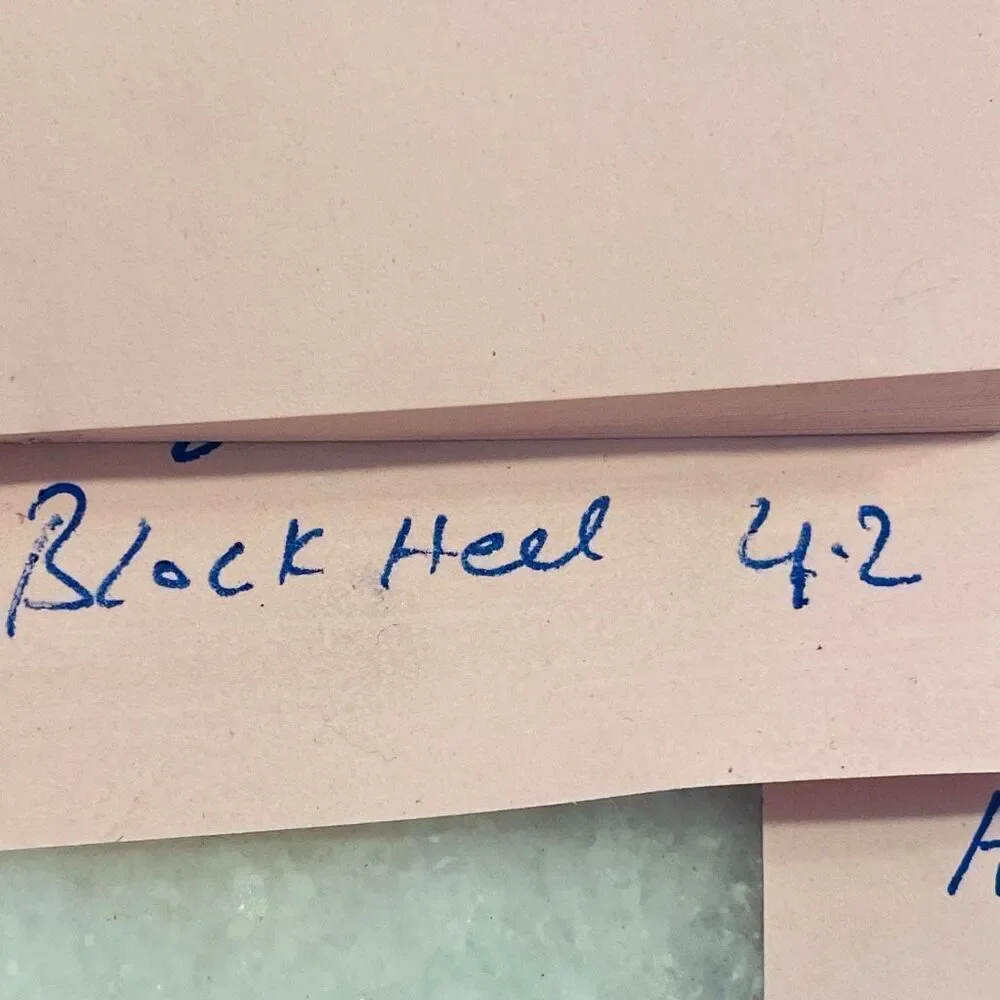 Block Heel 4.2